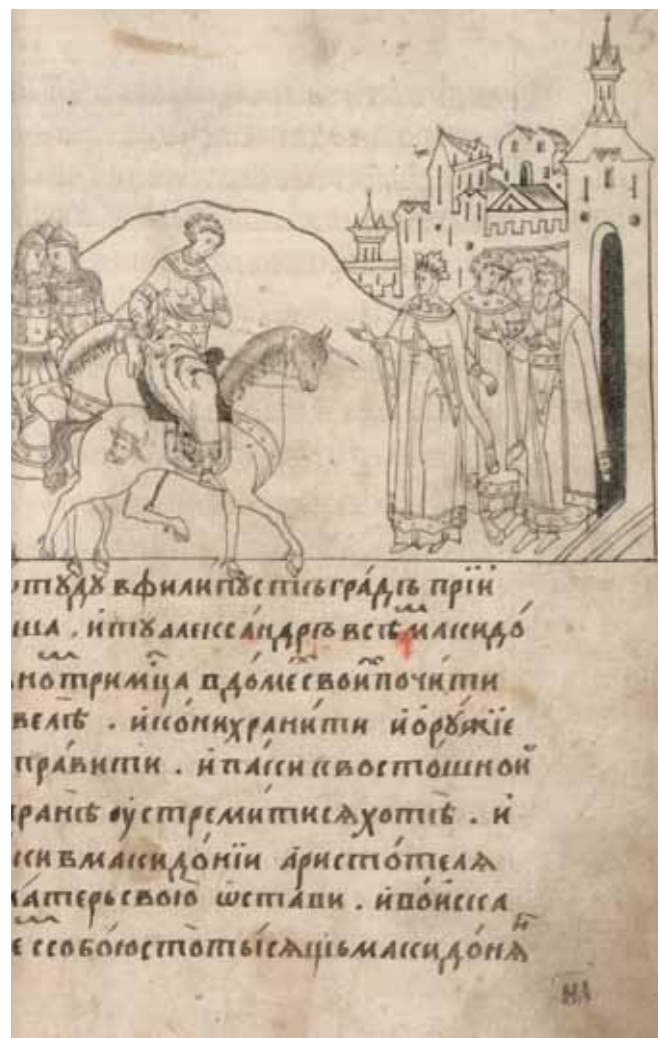 тꙋдꙋ в филипꙋсть гра́дъ прїи
ша . и тꙋ алекса́ндръ всѣ макидо́
но три мц҃а в до́ме свои почи́ти
велѣ . и ко́ни храни́ти и орꙋ́жїе
пра́вити . и паки к востошнои
ранѣ оустреми́тися хотѣ . и
ки в македо́нїи а́ристо́теля
матерь свою ѡста́ви . и во́иска
е с собо́ю сто ты́сящь македо́ня